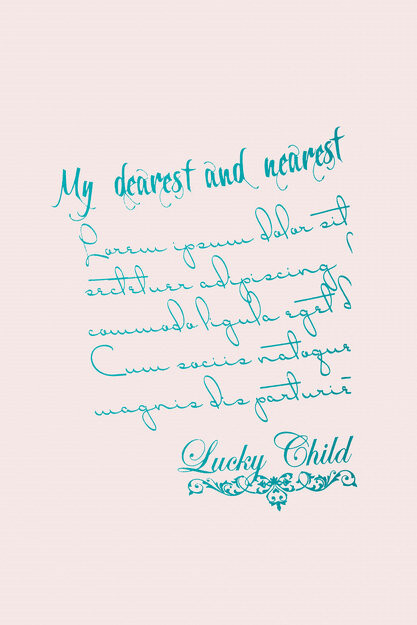 My dearest and nearest
Lorem ipsum dolor sit
sectetuer adipiscing
commodo ligula eget
Cum sociis natoque
magnis dis parturie
Lucky Child